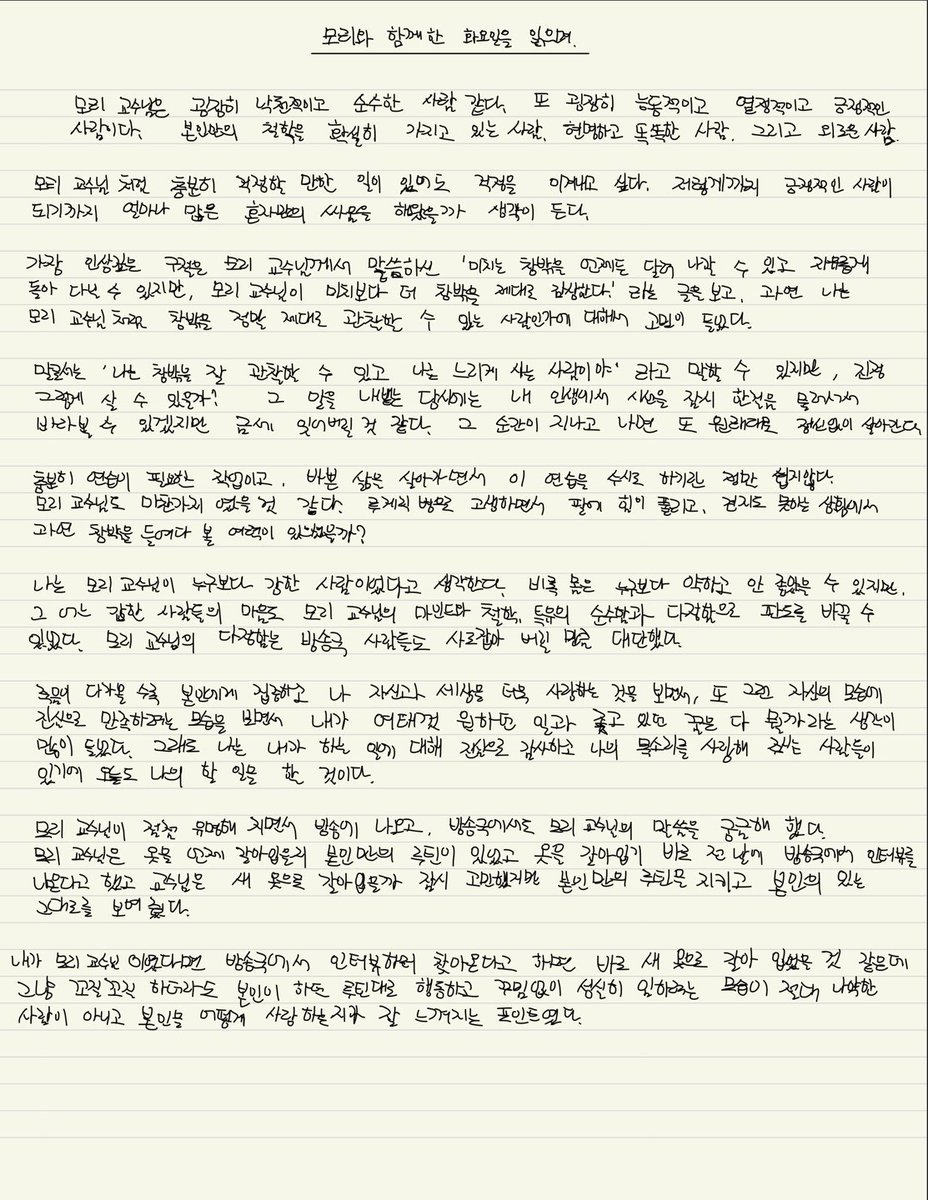 모리와 함께한 화요일을 읽으며.
모리 교수님은 굉장히 낙천적이고 순수한 사람 같다. 또 굉장히 능동적이고 열정적이고 긍정적인
사람이다. 본인만의 철학을 확실히 가지고 있는 사람. 현명하고 똑똑한 사람. 그리고 외로운 사람.
모리 교수님 처럼 충분히 걱정할 만한 일이 있어도 걱정을 이겨내고 싶다. 저렇게까지 긍정적인 사람이
되기까지 얼마나 많은 혼자만의 싸움을 해왔을까 생각이 든다.
가장 인상깊은 구절은 모리 교수님께서 말씀하신 '미치는 창밖을 언제든 달려 나갈 수 있고 자유롭게
돌아 다닐 수 있지만, 모리 교수님이 미치보다 더 창밖을 제대로 감상한다.' 라는 글을 보고, 과연 나는
모리 교수님처럼 창밖을 정말 제대로 관찰할 수 있는 사람인가에 대해서 고민이 들었다.
말로서는 '나는 창밖을 잘 관찰할 수 있고 나는 느리게 사는 사람이야' 라고 말할 수 있지만, 진정
그렇게 살 수 있을까? 그 말을 내뱉는 당시에는 내 인생에서 시선을 잠시 한걸음 물러나서
바라볼 수 있겠지만 금세 잊어버릴 것 같다. 그 순간이 지나고 나면 또 원래대로 정신없이 살아간다
충분히 연습이 필요한 작업이고, 바쁜 삶을 살아가면서 이 연습을 수시로 하기란 정말 쉽지않다.
모리 교수님도 마찬가지 였을 것 같다. 루게릭 병으로 고생하면서 팔에 힘이 풀리고, 걷지도 못하는 상황에서
과연 창밖을 들여다 볼 여력이 있었을까?
나는 모리 교수님이 누구보다 강한 사람이었다고 생각한다. 비록 몸은 누구보다 약하고 안 좋았을 수 있지만,
그 어느 강한 사람들의 마음도 모리 교수님의 마인드와 철학, 특유의 순수함과 다정함으로 판도를 바꿀 수
있었다. 모리 교수님의 다정함은 방송국 사람들도 사로잡아 버릴 만큼 대단했다.
죽음이 다가올 수록 본인에게 집중하고 나 자신과 세상을 더욱 사랑하는 것을 보면서, 또 그런 자신의 모습에
진심으로 만족하려는 모습을 보면서 내가 여태껏 원하던 일과 좇고 있던 꿈은 다 뭘까라는 생각이
많이 들었다. 그래도 나는 내가 하는 일에 대해 진심으로 감사하고 나의 목소리를 사랑해 주는 사람들이
있기에 오늘도 나의 할 일을 할 것이다.
모리 교수님이 점점 유명해 지면서 방송에 나오고, 방송국에서도 모리 교수님의 말씀을 궁금해 했다.
모리 교수님은 옷을 언제 갈아입을지 본인만의 루틴이 있었고 옷을 갈아입기 바로 전 날에 방송국에서 인터뷰를
나온다고 했고 교수님은 새 옷으로 갈아입을까 잠시 고민했지만 본인만의 루틴을 지키고 본인의 있는
그대로를 보여줬다.
내가 모리 교수님 이었다면 방송국에서 인터뷰하러 찾아온다고 하면 바로 새 옷으로 갈아 입었을 것 같은데
그냥 꼬질꼬질 하더라도 본인이 하던 루틴대로 행동하고 꾸밈없이 성실히 임하려는 모습이 절대 나약한
사람이 아니고 본인을 어떻게 사랑하는지가 잘 느껴지는 포인트였다.